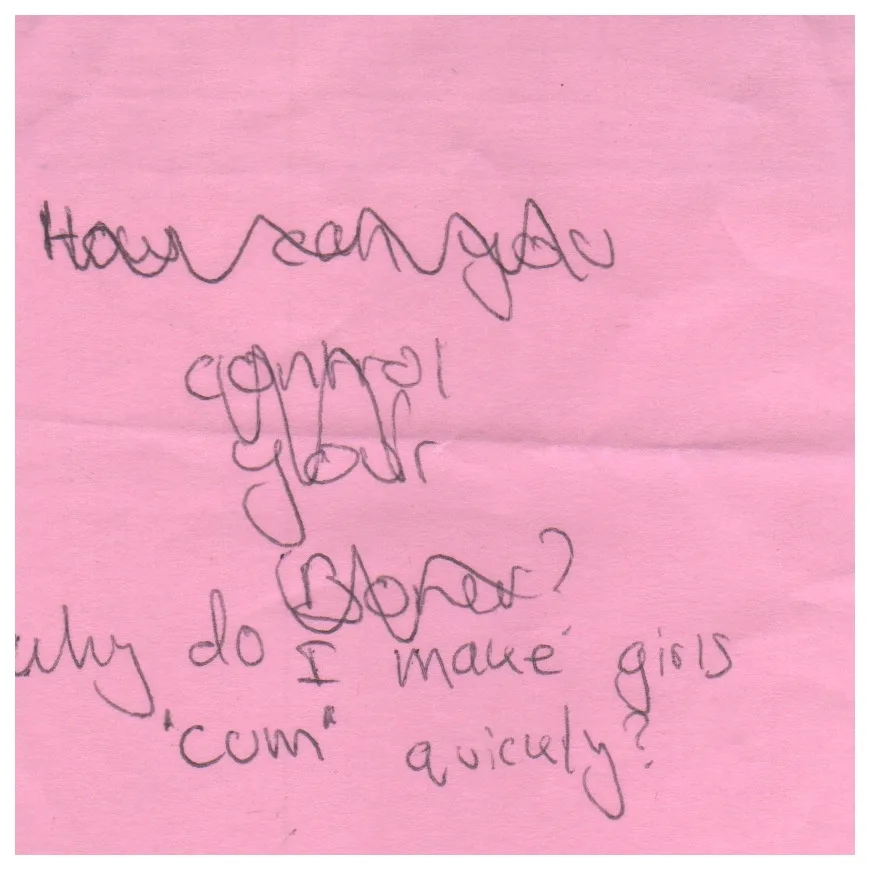 How can you
control
your
Boner?
why do I make girls
"cum" quickly?